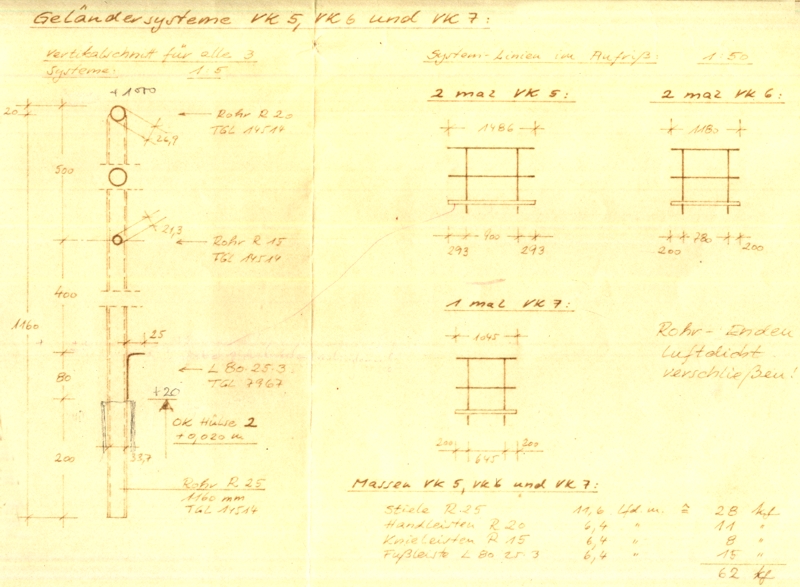 Geländersysteme VK 5, VK 6 und VK 7:
Vertikalschnitt für alle 3
Systeme: 1:5
System-Linien im Aufriß: 1:50
+1000
20
Rohr R 20
TGL 14514
26,9
500
21,3
Rohr R 15
TGL 14514
400
1160
25
80
L 80·25·3
TGL 7967
+20
OK Hülse 2
+0,020 m
200
33,7
Rohr R 25
1160 mm
TGL 14514
2 mal VK 5:
1486
293
900
293
2 mal VK 6:
1180
200
780
200
1 mal VK 7:
1045
200
645
200
Rohr-Enden
luftdicht
verschließen!
Massen VK 5, VK 6 und VK 7:
Stiele R 25 11,6 lfd. m. ≙ 28 kg
Handleisten R 20 6,4 " 11 "
Knieleisten R 15 6,4 " 8 "
Fußleiste L 80·25·3 6,4 " 15 "
62 kg